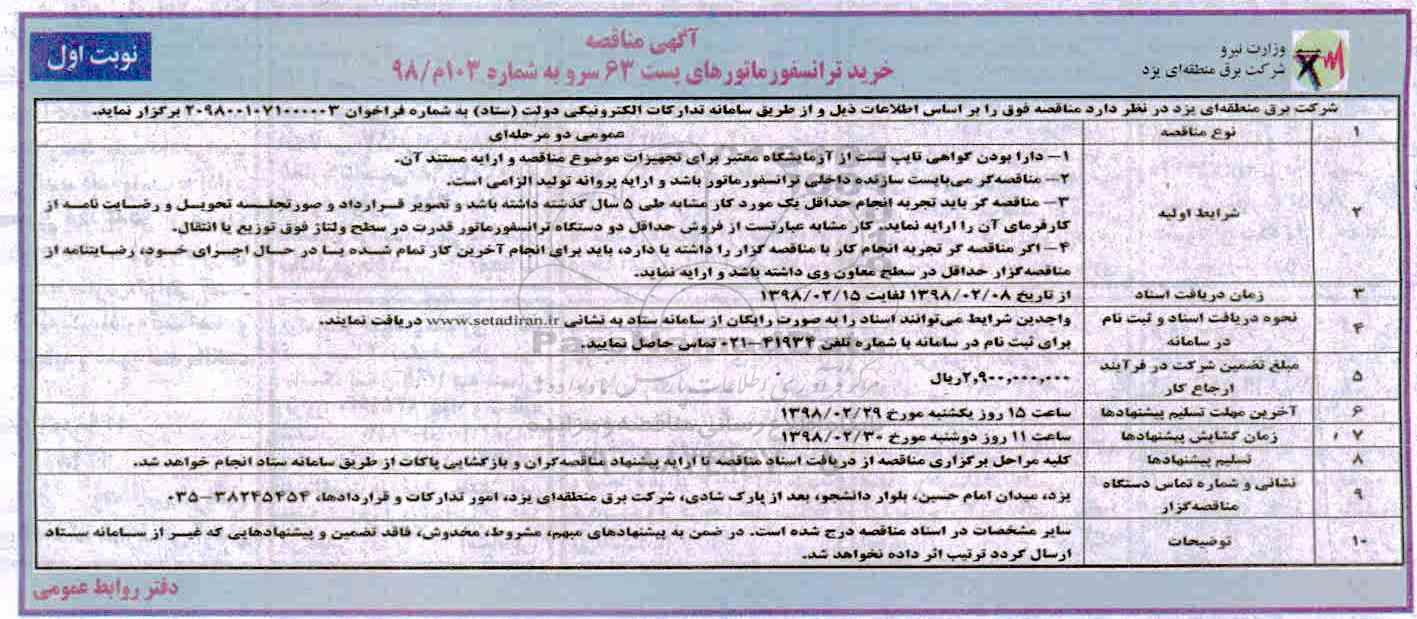 آگهی مناقصه
خرید ترانسفورماتورهای پست ۶۳ سرو به شماره ۱۰۳م/۹۸
وزارت نیرو
شرکت برق منطقه‌ای یزد
نوبت اول
شرکت برق منطقه‌ای یزد در نظر دارد مناقصه فوق را بر اساس اطلاعات ذیل و از طریق سامانه تدارکات الکترونیکی دولت (ستاد) به شماره فراخوان ۲۰۹۸۰۰۱۰۷۱۰۰۰۰۰۳ برگزار نماید.
۱ نوع مناقصه عمومی دو مرحله‌ای
۲ شرایط اولیه
۱– دارا بودن گواهی تایپ تست از آزمایشگاه معتبر برای تجهیزات موضوع مناقصه و ارایه مستند آن.
۲– مناقصه‌گر می‌بایست سازنده داخلی ترانسفورماتور باشد و ارایه پروانه تولید الزامی است.
۳– مناقصه گر باید تجربه انجام حداقل یک مورد کار مشابه طی ۵ سال گذشته داشته باشد و تصویر قرارداد و صورتجلسه تحویل و رضایت نامه از
کارفرمای آن را ارایه نماید. کار مشابه عبارتست از فروش حداقل دو دستگاه ترانسفورماتور قدرت در سطح ولتاژ فوق توزیع یا انتقال.
۴– اگر مناقصه گر تجربه انجام کار با مناقصه گزار را داشته یا دارد، باید برای انجام آخرین کار تمام شده یا در حال اجرای خود، رضایتنامه از
مناقصه‌گزار حداقل در سطح معاون وی داشته باشد و ارایه نماید.
۳ زمان دریافت اسناد از تاریخ ۱۳۹۸/۰۲/۰۸ لغایت ۱۳۹۸/۰۲/۱۵
۴ نحوه دریافت اسناد و ثبت نام
در سامانه
واجدین شرایط می‌توانند اسناد را به صورت رایگان از سامانه ستاد به نشانی www.setadiran.ir دریافت نمایند.
برای ثبت نام در سامانه با شماره تلفن ۴۱۹۳۴–۰۲۱ تماس حاصل نمایید.
۵ مبلغ تضمین شرکت در فرآیند
ارجاع کار
۲,۹۰۰,۰۰۰,۰۰۰ریال
۶ آخرین مهلت تسلیم پیشنهادها ساعت ۱۵ روز یکشنبه مورخ ۱۳۹۸/۰۲/۲۹
۷ زمان گشایش پیشنهادها ساعت ۱۱ روز دوشنبه مورخ ۱۳۹۸/۰۲/۳۰
۸ تسلیم پیشنهادها کلیه مراحل برگزاری مناقصه از دریافت اسناد مناقصه تا ارایه پیشنهاد مناقصه‌گران و بازگشایی پاکات از طریق سامانه ستاد انجام خواهد شد.
۹ نشانی و شماره تماس دستگاه
مناقصه‌گزار
یزد، میدان امام حسین، بلوار دانشجو، بعد از پارک شادی، شرکت برق منطقه‌ای یزد، امور تدارکات و قراردادها، ۳۸۲۴۵۴۵۴–۰۳۵
۱۰ توضیحات
سایر مشخصات در اسناد مناقصه درج شده است. در ضمن به پیشنهادهای مبهم، مشروط، مخدوش، فاقد تضمین و پیشنهادهایی که غیر از سامانه ستاد
ارسال گردد ترتیب اثر داده نخواهد شد.
دفتر روابط عمومی